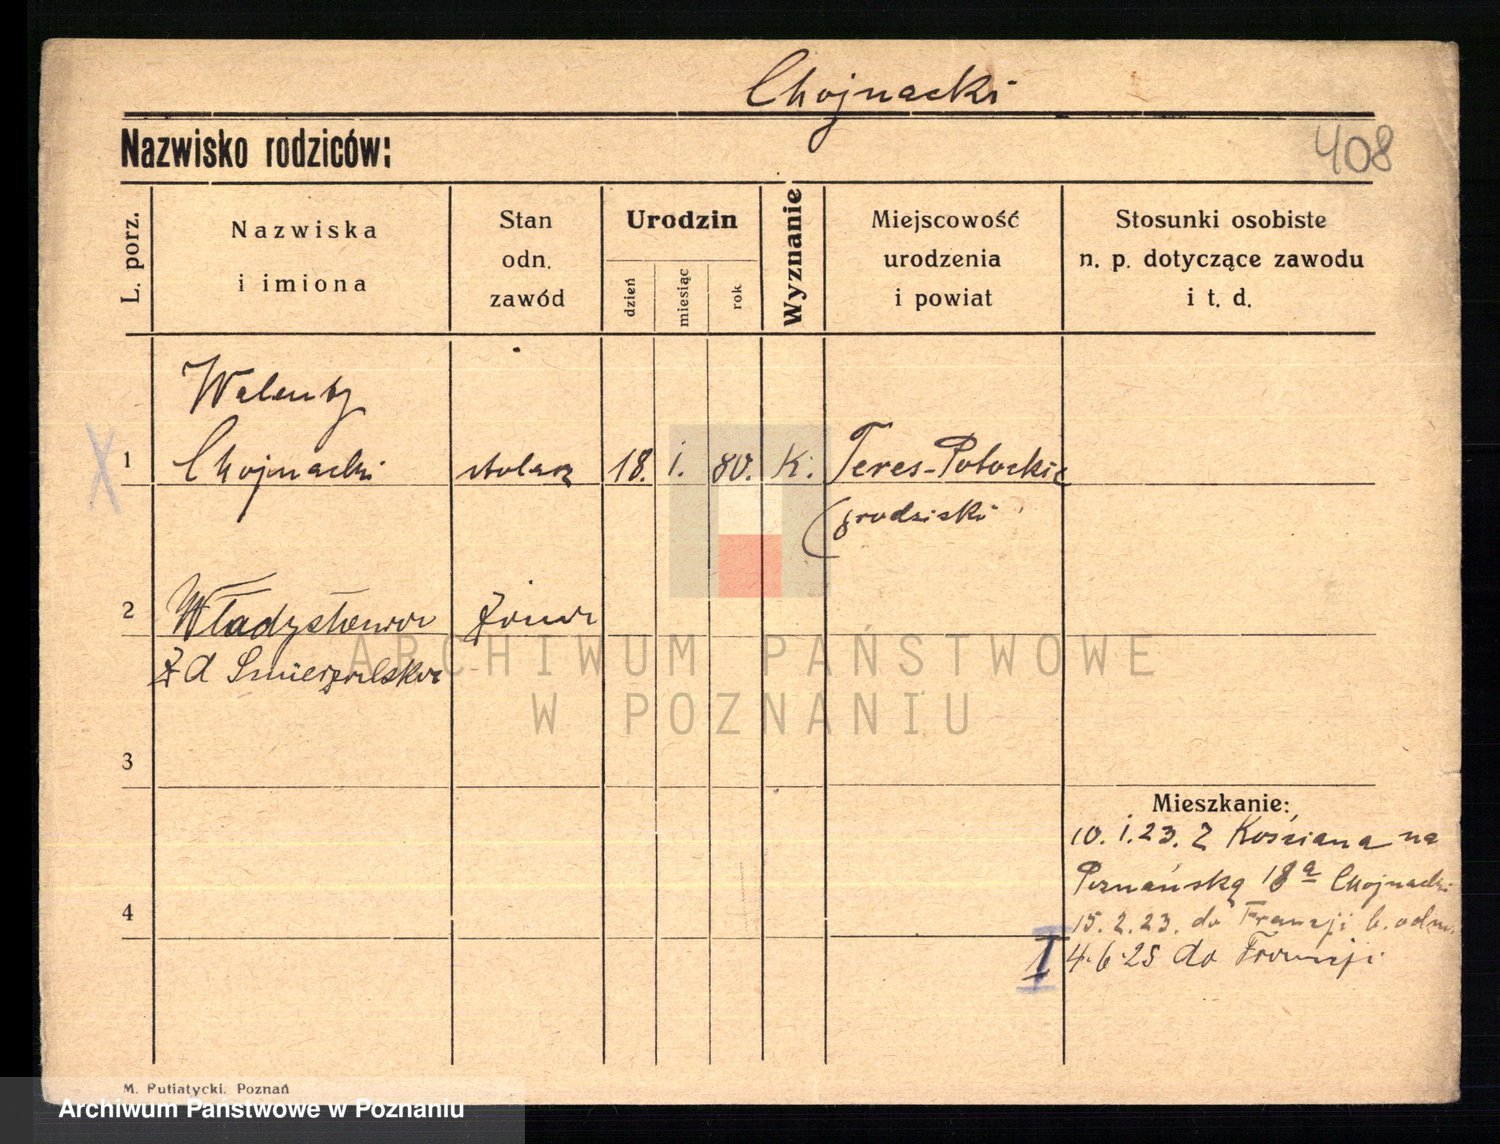 Chojnacki
Nazwisko rodziców:
408
L. porz.
Nazwiska
i imiona
Stan
odn.
zawód
Urodzin
dzień
miesiąc
rok
Wyznanie
Miejscowość
urodzenia
i powiat
Stosunki osobiste
n. p. dotyczące zawodu
i t. d.
Walenty
X 1 Chojnacki stolarz 18. i. 80. K. Teres-Potockie
grodziski
2 Władysława żona
Z d Smierzalska
ARCHIWUM PAŃSTWOWE
W POZNANIU
3
Mieszkanie:
10. i. 23. z Kościana na
Poznańską 18a Chojnacki
4
15. 2. 23. do Francji b. odm.
I 4.6.25 do Francji
M. Putiatycki. Poznań
Archiwum Państwowe w Poznaniu